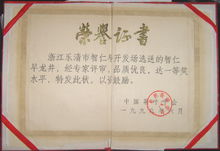 荣誉证书
浙江乐清市智仁 开发场选送的智仁
早龙井，经专家评审，品质优良，达一等奖
水平，特发此状，以资鼓励。
中国 会
一九九 年 月